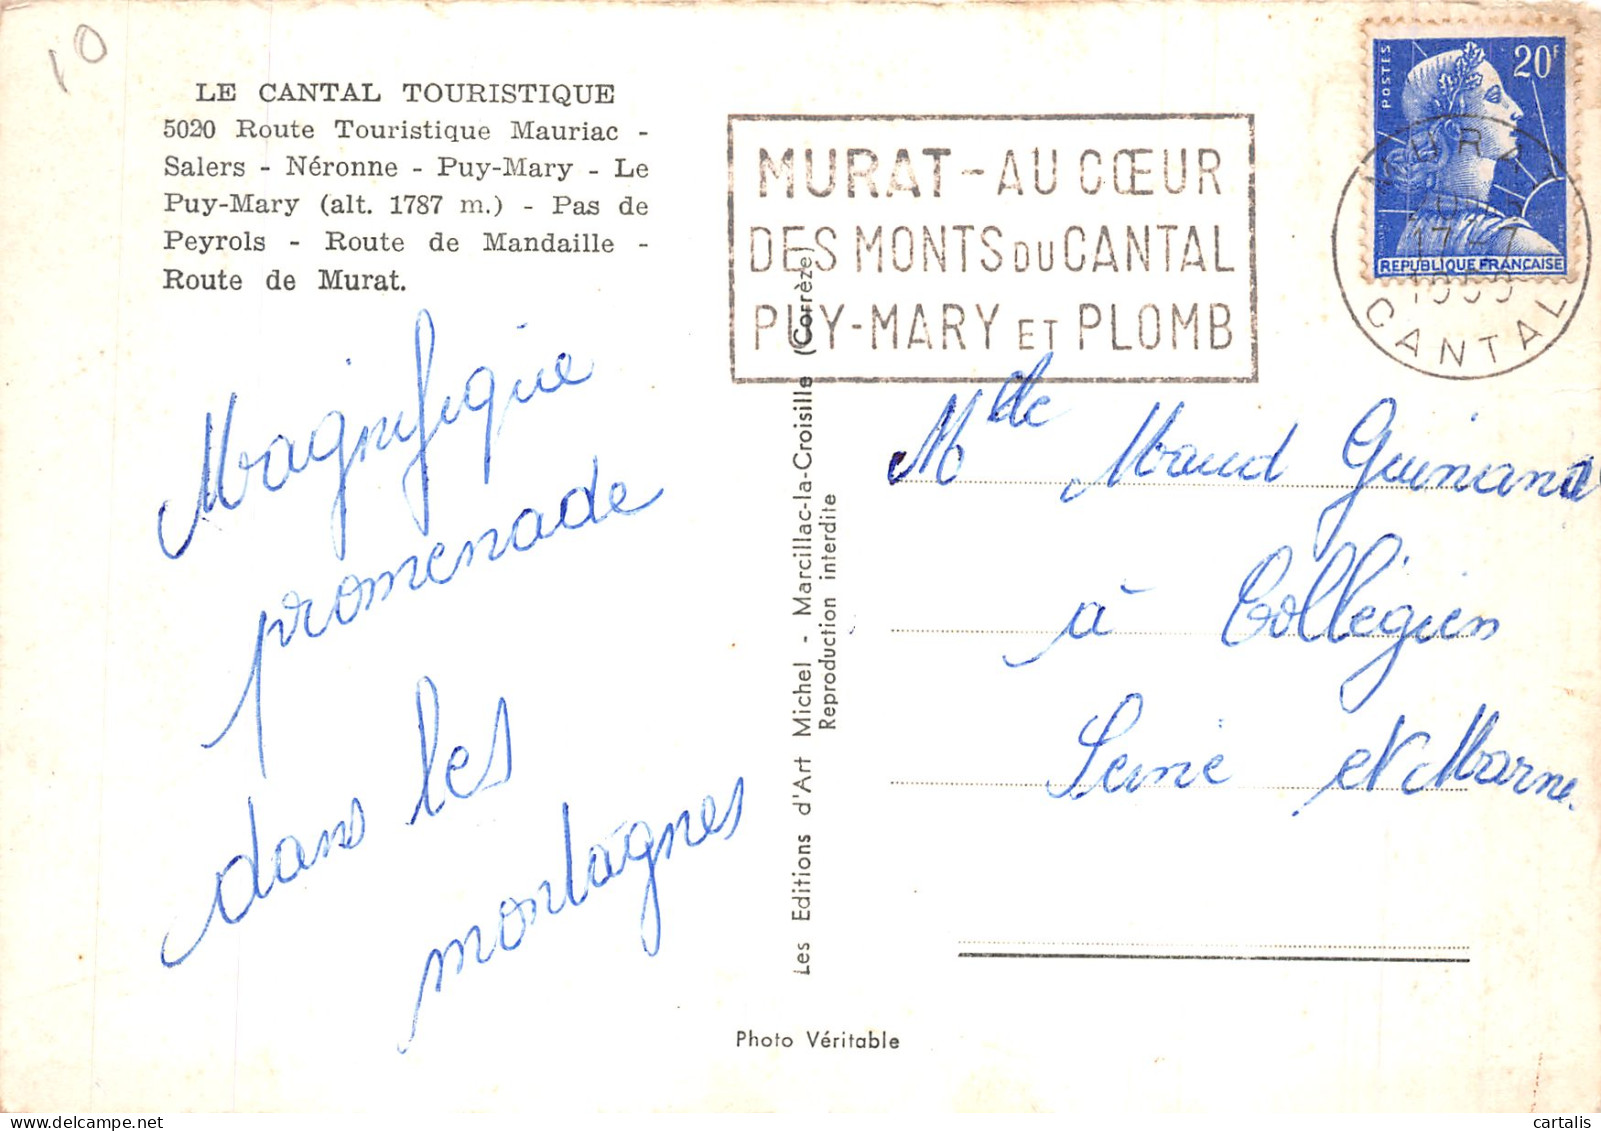 10
LE CANTAL TOURISTIQUE
5020 Route Touristique Mauriac -
Salers - Néronne - Puy-Mary - Le
Puy-Mary (alt. 1787 m.) - Pas de
Peyrols - Route de Mandaille -
Route de Murat.
Magnifique
promenade
dans les
montagnes
Les Editions d'Art Michel - Marcillac-la-Croisille (Corrèze)
Reproduction interdite
Photo Véritable
MURAT - AU CŒUR
DES MONTS DU CANTAL
PUY-MARY ET PLOMB
POSTES
20F
REPUBLIQUE FRANÇAISE
17-7
1959
CANTAL
Mlle Maud Guinand
à Collégien
Seine et Marne.
cartalis